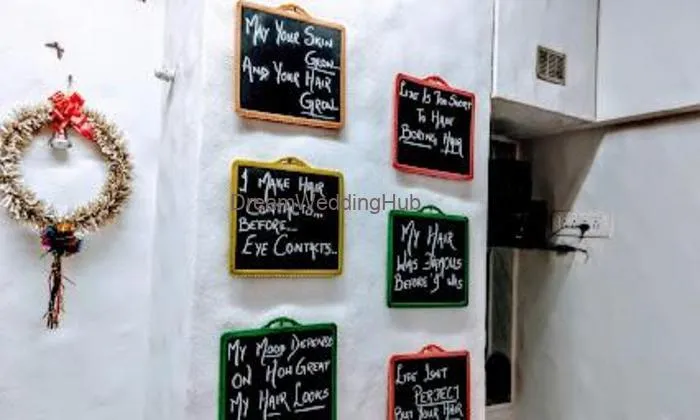 MAY YOUR SKIN
GLOW
AND YOUR HAIR
GROW
LIFE IS TOO SHORT
TO HAVE
BORING HAIR
I MAKE HAIR
CONTACTS...
BEFORE...
EYE CONTACTS..
DreamWeddingHub
MY HAIR
WAS FAMOUS
BEFORE "I" WAS
MY MOOD DEPENDS
ON HOW GREAT
MY HAIR LOOKS
LIFE ISNT
PERFECT
BUT YOUR HAIR